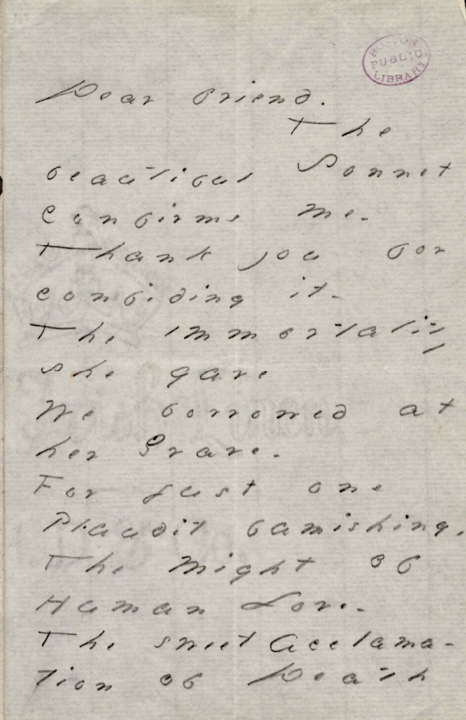 BOSTON
PUBLIC
LIBRARY
Dear friend.
The
beautiful Sonnet
confirms me -
Thank you for
confiding it -
The immortality
she gave
We borrowed at
her Grave -
For just one
Plaudit famishing,
The Might of
Human Love -
The sweet Acclama-
tion of Death